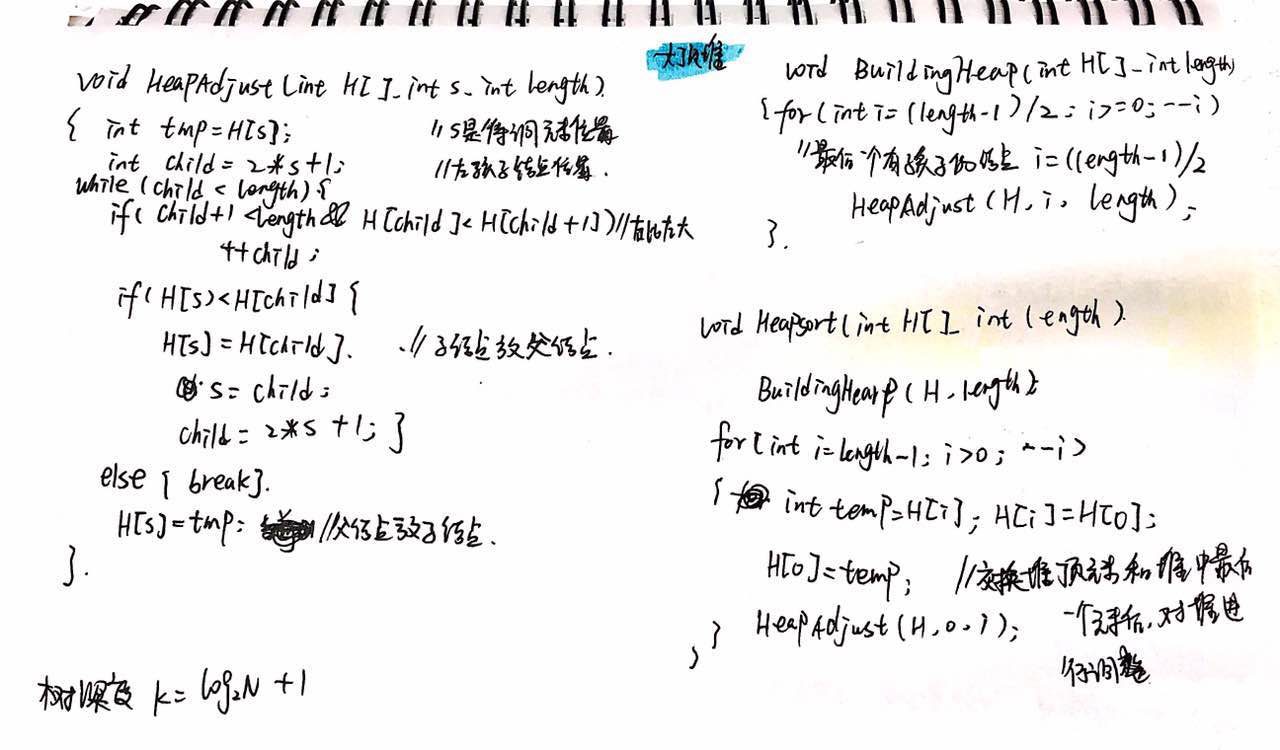 大顶堆
void HeapAdjust(int H[], int s, int length).
{ int tmp=H[s]; //s是待调元素位置
int child = 2*s+1; //左孩子结点位置.
while (child < length) {
if( child+1 <length && H[child]< H[child+1])//右比左大
++child;
if(H[s)<H[child] {
H[s] = H[child]. //子结点放父结点.
s = child;
child = 2*s +1; }
else { break}.
H[s]=tmp; //父结点放子结点.
}.
树深度 k= log₂N +1
void BuildingHeap(int H[], int length)
{ for(int i= (length-1)/2; i>=0; --i)
//最后一个有孩子的结点 i=(length-1)/2
HeapAdjust (H, i, length);
}.
void Heapsort(int H[], int length).
BuildingHeap(H, length);
for(int i=length-1; i>0; --i)
{ int temp=H[i]; H[i]=H[0];
H[0]=temp; //交换堆顶元素和堆中最后
} HeapAdjust(H,0,i); 一个元素后,对堆进
} 行调整